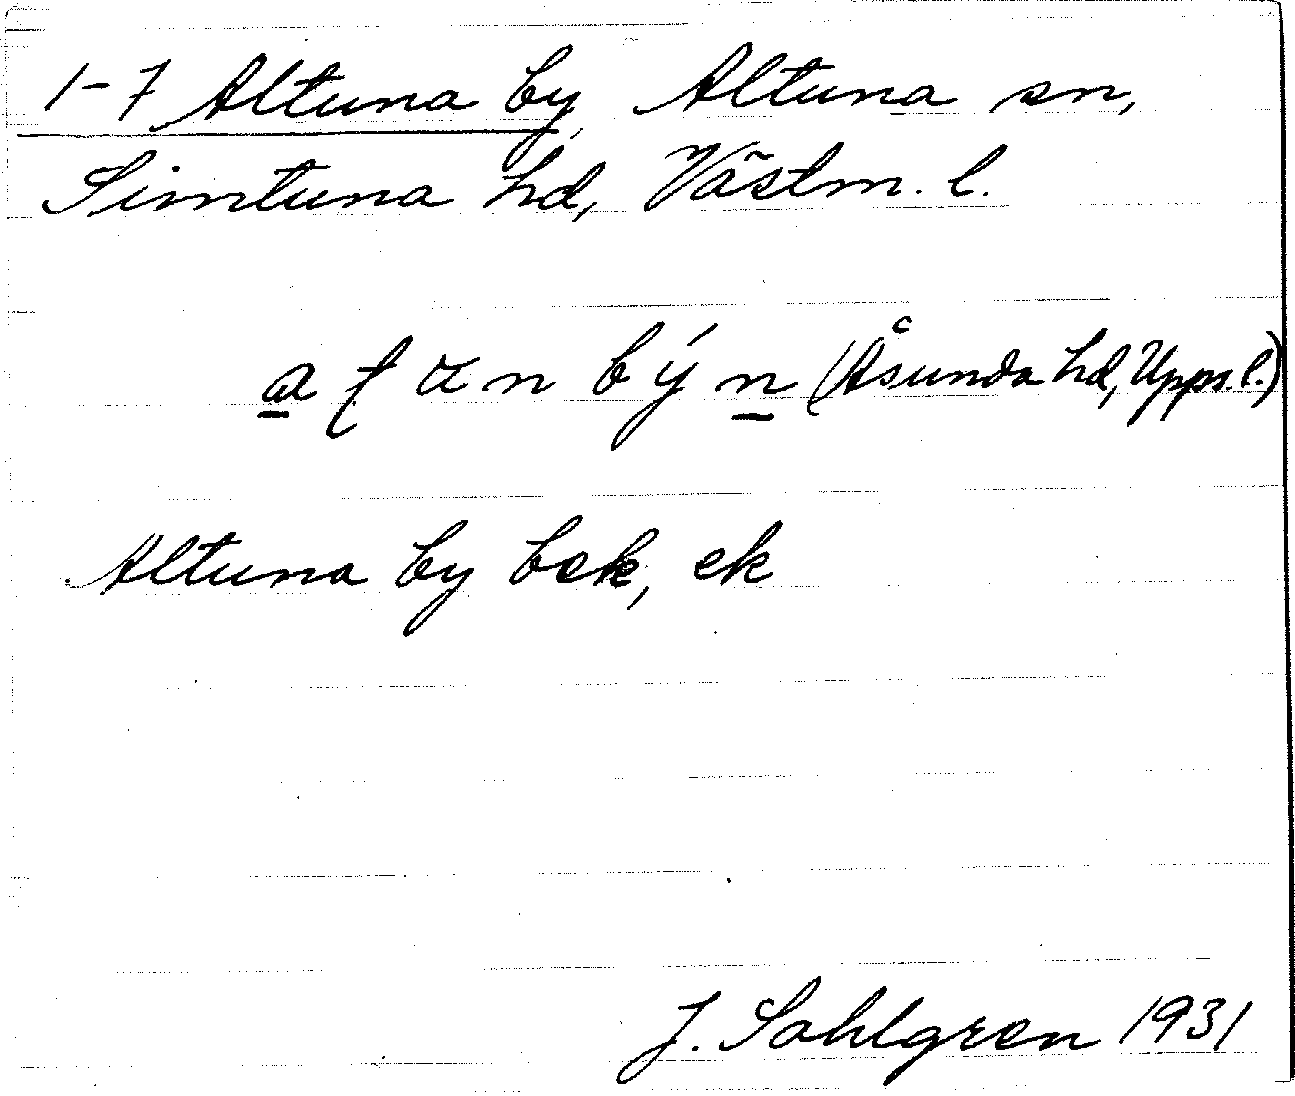 1-7 Altuna by Altuna sn,
Simtuna hd, Västm. l.
(Åsunda hd, Upps. l.)
Altuna by bek, ek
J. Sahlgren 1931